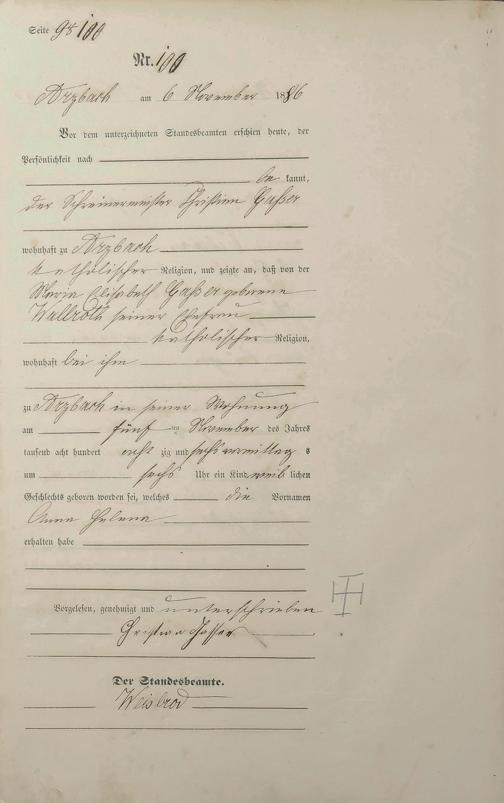 Seite 98 100
Nr. 100
Arzbach am 6 November 1886
Vor dem unterzeichneten Standesbeamten erschien heute, der
Persönlichkeit nach
be kannt,
der Schreinermeister Christian Gasser
wohnhaft zu Arzbach
katholischer Religion, und zeigte an, daß von der
Maria Elisabeth Gasser geborene
Wallroth seiner Ehefrau
katholischer Religion,
wohnhaft bei ihm
zu Arzbach in seiner Wohnung
am fünf ten November des Jahres
tausend acht hundert acht zig und sechs vormittag s
um sechs Uhr ein Kind weib lichen
Geschlechts geboren worden sei, welches die Vornamen
Anna Helena
erhalten habe
Vorgelesen, genehmigt und unterschrieben
Christian Gasser
Der Standesbeamte.
Weisbrod